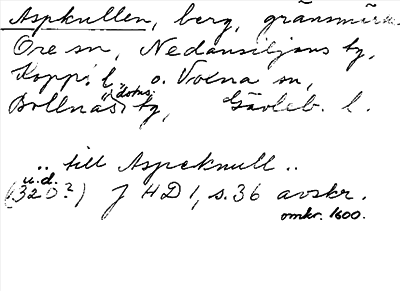 Aspkullen, berg, gränsmärke
Ore sn, Nedansiljans tg,
Kopp. l. o. Voxna sn,
Bollnäs tg, Gävleb. l.
.. till Aspeknull ..
u.d.
(1320?) J HD 1, s. 36 avskr.
omkr. 1600.